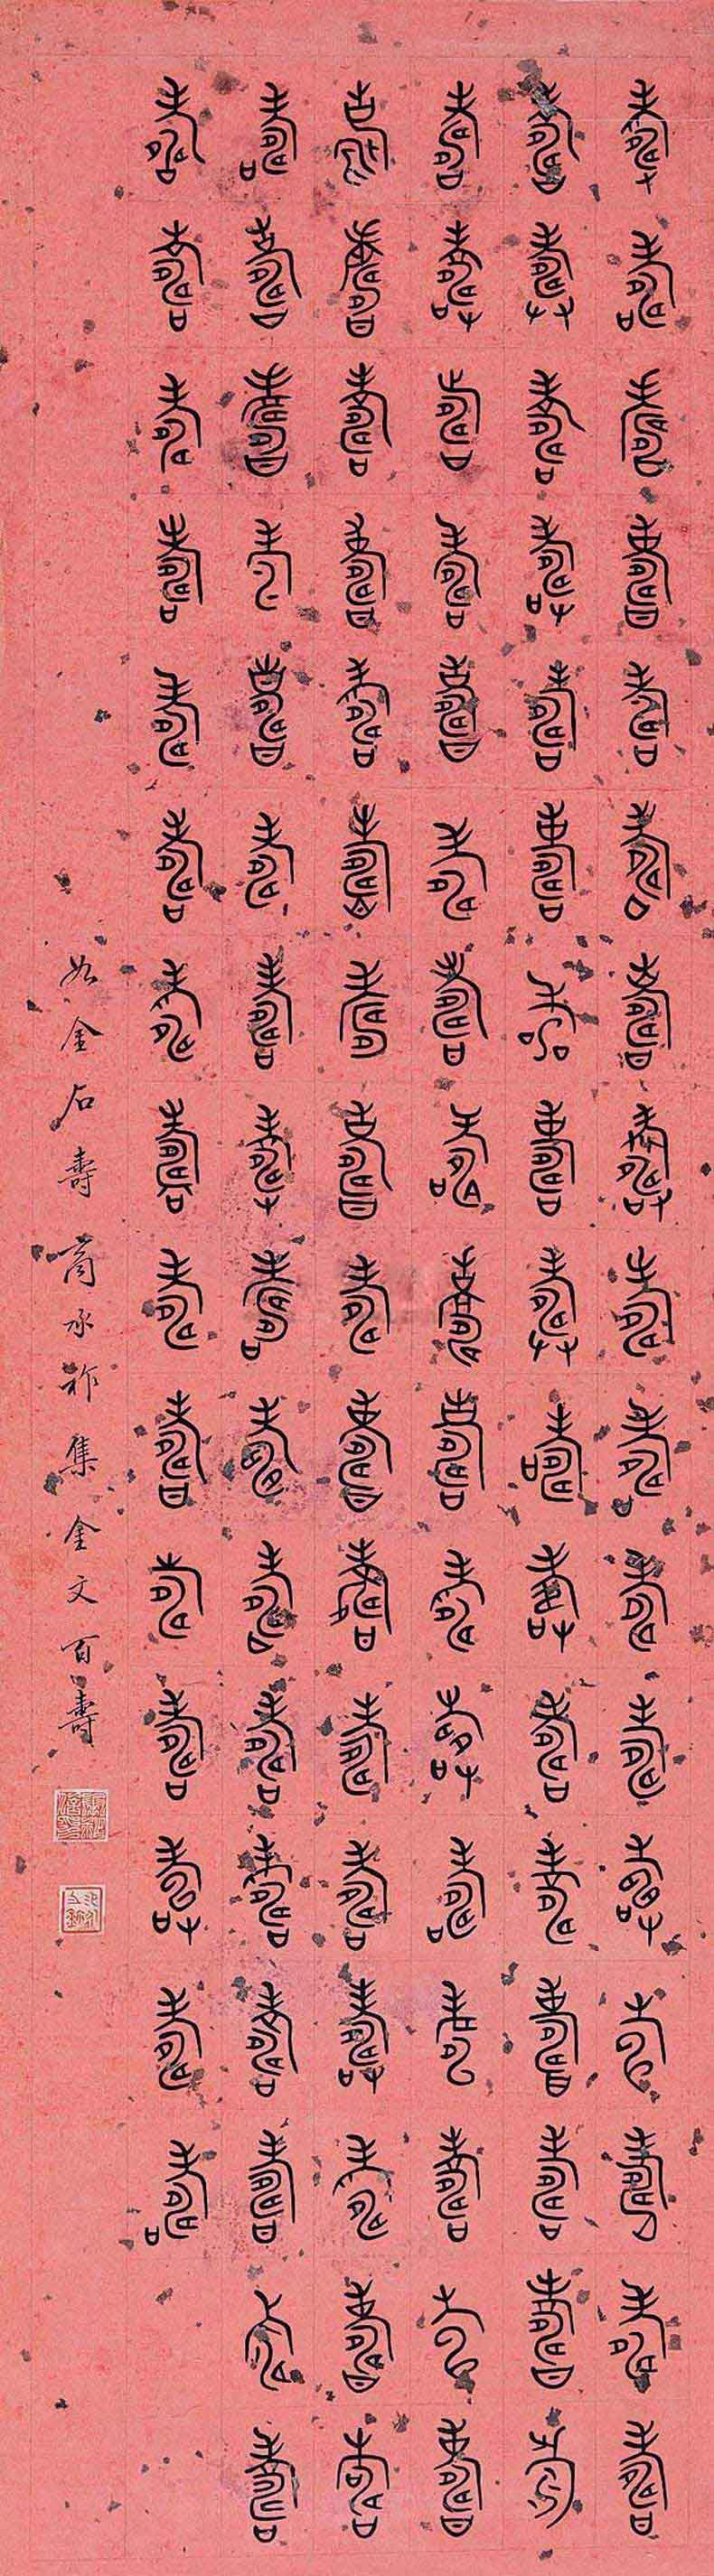 壽壽壽壽壽壽壽壽壽壽壽壽壽壽壽壽壽
壽壽壽壽壽壽壽壽壽壽壽壽壽壽壽壽壽
壽壽壽壽壽壽壽壽壽壽壽壽壽壽壽壽壽
壽壽壽壽壽壽壽壽壽壽壽壽壽壽壽壽壽
壽壽壽壽壽壽壽壽壽壽壽壽壽壽壽壽壽
壽壽壽壽壽壽壽壽壽壽壽壽壽壽壽
如金石壽 商承祚集金文百壽